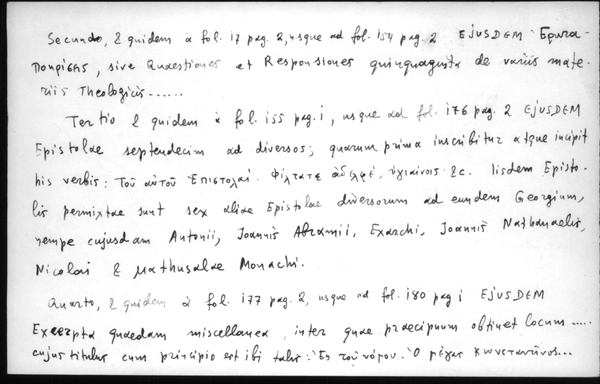 Secundo, & quidem à fol. 17 pag. 2, usque ad fol. 154 pag. 2 EJUSDEM
sive Quaestiones et Responsiones quinquaginta de variis mate-
riis Theologicis......
Tertio & quidem à fol. 155 pag. 1, usque ad fol. 176 pag. 2 EJUSDEM
Epistolae septendecim ad diversos; quarum prima inscribitur atque incipit
his verbis: Τοῦ αὐτοῦ ἐπιστολαί. Φίλτατε ἀδελφέ, ὑγιαίνοις &c. Iisdem Episto-
lis permixtae sunt sex aliae Epistolae diversorum ad eundem Georgium,
nempe cujusdam Antonii, Joannis Abramii, Exarchi, Joannis Nathanaelis,
Nicolai & Mathusalae Monachi.
Quarto, & quidem à fol. 177 pag. 2, usque ad fol. 180 pag 1 EJUSDEM
Excerpta quaedam miscellanea, inter quae praecipuum obtinet locum.....
cujus titulus cum principio est ibi talis: Ἐκ τοῦ νόμου. Ὁ μέγας Κωνσταντῖνος...